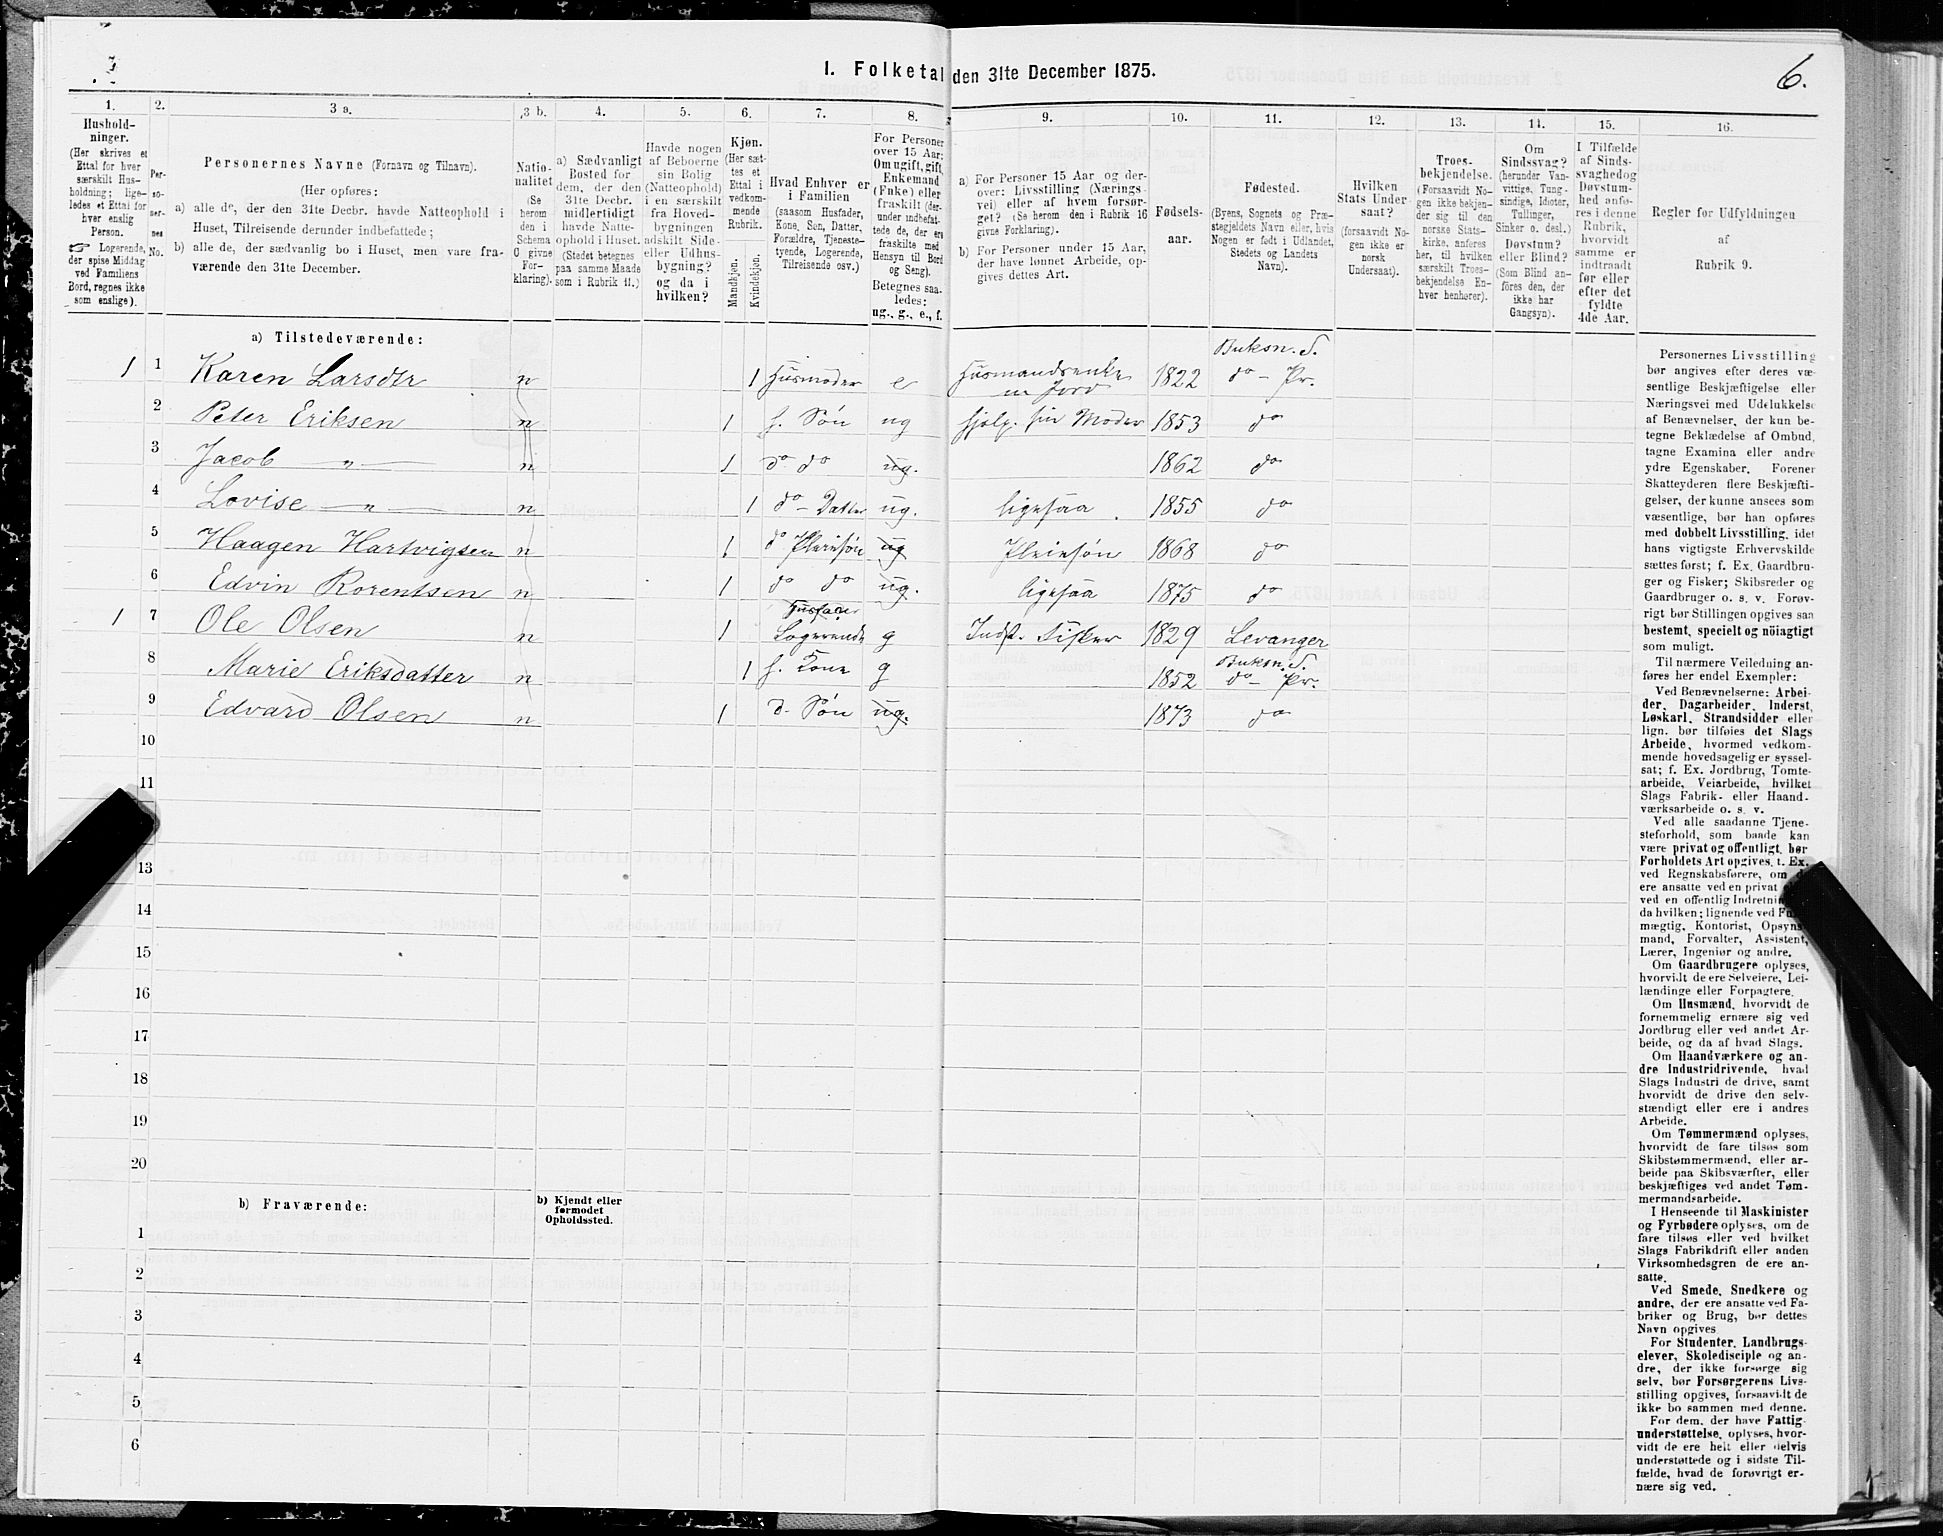 I. Folketal den 31te December 1875.
6.
1.
Hushold-
ninger.
(Her skrives et
Ettal for hver
særskilt Hus-
holdning; lige-
ledes et Ettal for
hver enslig
Person.
☞ Logerende,
der spise Middag
ved Familiens
Bord, regnes ikke
som enslige).
2.
Per-
so-
ner-
nes
No.
3 a.
Personernes Navne (Fornavn og Tilnavn).
(Her opføres:
a) alle de, der den 31te Decbr. havde Natteophold i
Huset, Tilreisende derunder indbefattede;
b) alle de, der sædvanlig bo i Huset, men vare fra-
værende den 31te December.
3 b.
Natio-
nalitet
(Se
herom
den i
Schema
O givne
For-
klaring).
4.
a) Sædvanligt
Bosted for
dem, der den
31te Decbr.
midlertidigt
havde Natte-
ophold i Huset.
(Stedet betegnes
paa samme Maade
som i Rubrik 11.)
5.
Havde nogen
af Beboerne
sin Bolig
(Natteophold)
i en særskilt
fra Hoved-
bygningen
adskilt Side-
eller Udhus-
bygning?
og da i
hvilken?
6.
Kjøn.
(Her sæt-
tes et
Ettal i
vedkom-
mende
Rubrik.
Mandkjøn.
Kvindekjøn.
7.
Hvad Enhver er
i Familien
(saasom Husfader,
Kone, Søn, Datter,
Forældre, Tjeneste-
tyende, Logerende,
Tilreisende osv.)
8.
For Personer
over 15 Aar:
Om ugift, gift,
Enkemand
(Enke) eller
fraskilt (der-
under indbefat-
tede de, der ere
fraskilte med
Hensyn til Bord
og Seng).
Betegnes saa-
ledes:
ug., g., e., f.
9.
a) For Personer 15 Aar og der-
over: Livsstilling (Nærings-
vei) eller af hvem forsør-
get? (Se herom den i Rubrik 16
givne Forklaring).
b) For Personer under 15 Aar,
der have lønnet Arbeide, op-
gives dettes Art.
10.
Fødsels-
aar.
11.
Fødested.
(Byens, Sognets og Præ-
stegjeldets Navn eller, hvis
Nogen er født i Udlandet,
Stedets og Landets
Navn).
12.
Hvilken
Stats Under-
saat?
(forsaavidt No-
gen ikke er
norsk
Undersaat).
13.
Troes-
bekjendelse.
(Forsaavidt No-
gen ikke bekjen-
der sig til den
norske Stats-
kirke, anføres
her, til hvilken
særskilt Troes-
bekjendelse En-
hver henhører).
14.
Om
Sindssvag?
(herunder Van-
vittige, Tung-
sindige, Idioter,
Tullinger,
Sinker o. desl.)
Døvstum?
eller Blind?
(Som Blind an-
føres den, der
ikke har
Gangsyn).
15.
I Tilfælde
af Sinds-
svaghed og
Døvstum-
hed anfø-
res i denne
Rubrik,
hvorvidt
samme er
indtraadt
før eller
efter det
fyldte
4de Aar.
16.
Regler for Udfyldningen
af
Rubrik 9.
a) Tilstedeværende:
1 1 Karen Larsdtr n 1 Husmoder e Husmandsenke m Jord 1822 Buksn. S. do - Pr.
2 Peter Eriksen n 1 h. Søn ug hjelp. sin Moder 1853 do
3 Jacob — " — n 1 do do ug. 1862 do
4 Lovise — " — n 1 do - Datter ug. ligesaa. 1855 do
5 Haagen Hartvigsen n 1 do Pleiesøn ug Pleiesøn 1868 do
6 Edvin Rorentsen n 1 do do ug. ligesaa 1875 do
1 7 Ole Olsen n 1 Husfader Logerende g Indst. Fisker 1829 Levanger
8 Marie Eriksdatter n 1 h. Kone g 1852 Buksn. S. do - Pr.
9 Edvard Olsen n 1 d. Søn ug. 1873 do
10
11
13
14
15
16
17
18
19
20
b) Fraværende:
b) Kjendt eller
formodet
Opholdssted.
1
2
3
4
5
6
Personernes Livsstilling
bør angives efter deres væ-
sentlige Beskjæftigelse eller
Næringsvei med Udelukkelse
af Benævnelser, der kun be-
tegne Beklædelse af Ombud,
tagne Examina eller andre
ydre Egenskaber. Forener
Skatteyderen flere Beskjæfti-
gelser, der kunne ansees som
væsentlige, bør han opføres
med dobbelt Livsstilling, idet
hans vigtigste Erhvervskilde
sættes først; f. Ex. Gaardbru-
ger og Fisker; Skibsreder og
Gaardbruger o. s. v. Forøv-
rigt bør Stillingen opgives saa
bestemt, specielt og nöiagtigt
som muligt.
Til nærmere Veiledning an-
føres her endel Exempler:
Ved Benævnelserne: Arbei-
der, Dagarbeider, Inderst,
Løskarl, Strandsidder eller
lign. bør tilføies det Slags
Arbeide, hvormed vedkom-
mende hovedsagelig er syssel-
sat; f. Ex. Jordbrug, Tomte-
arbeide, Veiarbeide, hvilket
Slags Fabrik- eller Haand-
værksarbeide o. s. v.
Ved alle saadanne Tjene-
steforhold, som baade kan
være privat og offentligt, bør
Forholdets Art opgives, t. Ex.
ved Regnskabsførere, om
ere ansatte ved en privat
ved en offentlig Indretnin
da hvilken; lignende ved Fu
mægtig, Kontorist, Opsyns
mand, Forvalter, Assistent,
Lærer, Ingeniør og andre.
Om Gaardbrugere oplyses,
hvorvidt de ere Selveiere, Lei-
lændinge eller Forpagtere.
Om Husmænd, hvorvidt de
fornemmelig ernære sig ved
Jordbrug eller ved andet Ar-
beide, og da af hvad Slags.
Om Haandværkere og an-
dre Industridrivende, hvad
Slags Industri de drive, samt
hvorvidt de drive den selv-
stændigt eller ere i andres
Arbeide.
Om Tømmermænd oplyses,
hvorvidt de fare tilsøs som
Skibstømmermænd, eller ar-
beide paa Skibsværfter, eller
beskjæftiges ved andet Tøm-
mermandsarbeide.
I Henseende til Maskinister
og Fyrbødere oplyses, om de
fare tilsøs eller ved hvilket
Slags Fabrikdrift eller anden
Virksomhedsgren de ere an-
satte.
Ved Smede, Snedkere og
andre, der ere ansatte ved Fa-
briker og Brug, bør dettes
Navn opgives
For Studenter, Landbrugs-
elever, Skoledisciple og an-
dre, der ikke forsørge sig
selv, bør Forsørgerens Livs-
stilling opgives, forsaavidt de
ikke bo sammen med denne.
For dem, der have Fattig-
understøttelse, oplyses, hvor-
vidt de ere helt eller delvis
understøttede og i sidste Til-
fælde, hvad de forøvrigt er-
nære sig ved.